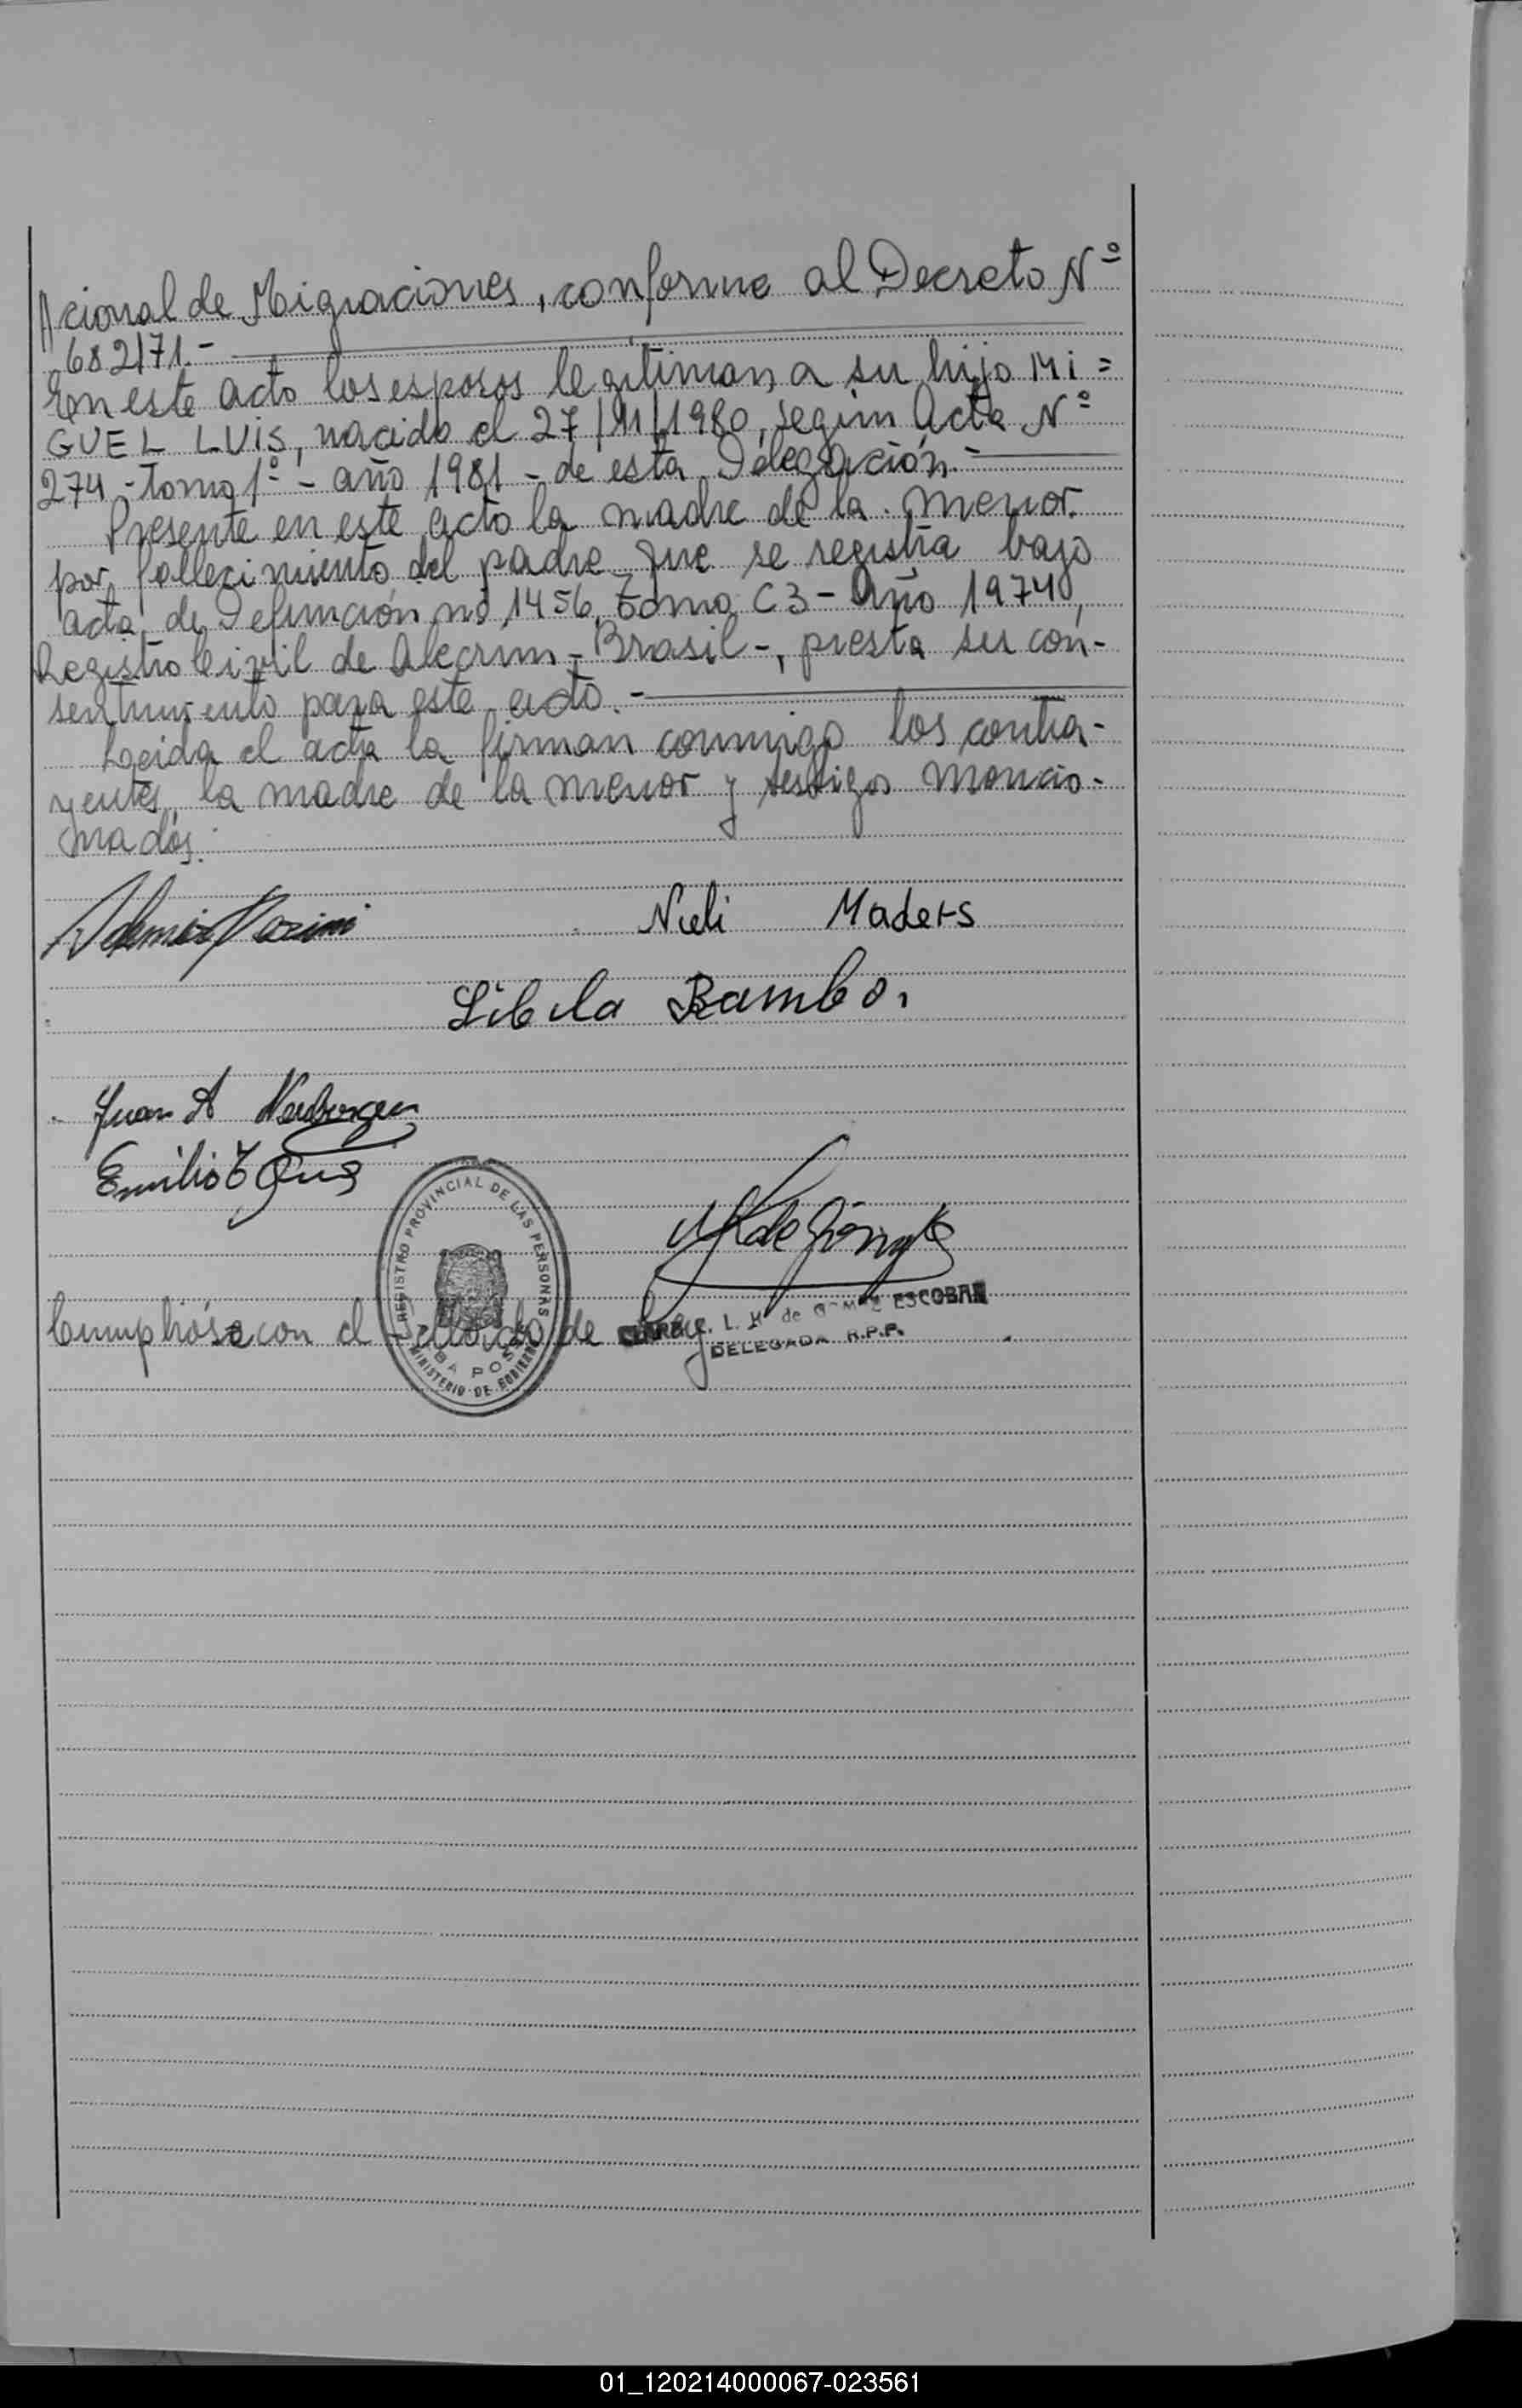 cional de Migraciones, conforme al Decreto Nº
682/71.-
En este acto los esposos legitiman a su hijo Mi=
GUEL LUIS, nacido el 27/11/1980, según Acta Nº
274 - tomo 1º - año 1981 - de esta Delegación.-
Presente en este acto la madre de la menor
por fallecimiento del padre que se registra bajo
acta de Defunción nº 1456, tomo C3 - Año 1974,
Registro Civil de Alecrim - Brasil -, presta su con-
sentimiento para este acto.-
Leida el acta la firman conmigo los contra-
yentes, la madre de la menor y testigos mencio-
nados.
Nieli Maders
Sibila Rambo.
Juan A
Emilio
REGISTRO PROVINCIAL DE LAS PERSONAS
BA POSSE
MINISTERIO DE GOBIERNO
L. H. de GOMEZ ESCOBAR
DELEGADA R.P.P.
Cumplióse con el de
01_120214000067-023561